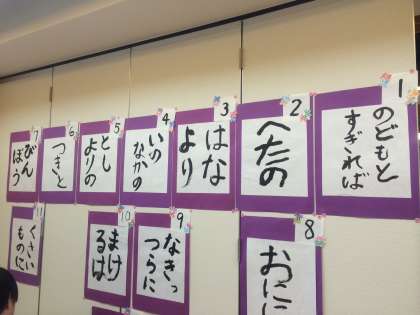 1
のどもと
すぎれば
2
へたの
3
はな
より
4
いの
なかの
5
とし
よりの
6
つきと
7
びん
ぼう
8
おにに
9
なきっ
つらに
10
まけ
るは
11
くさい
ものに